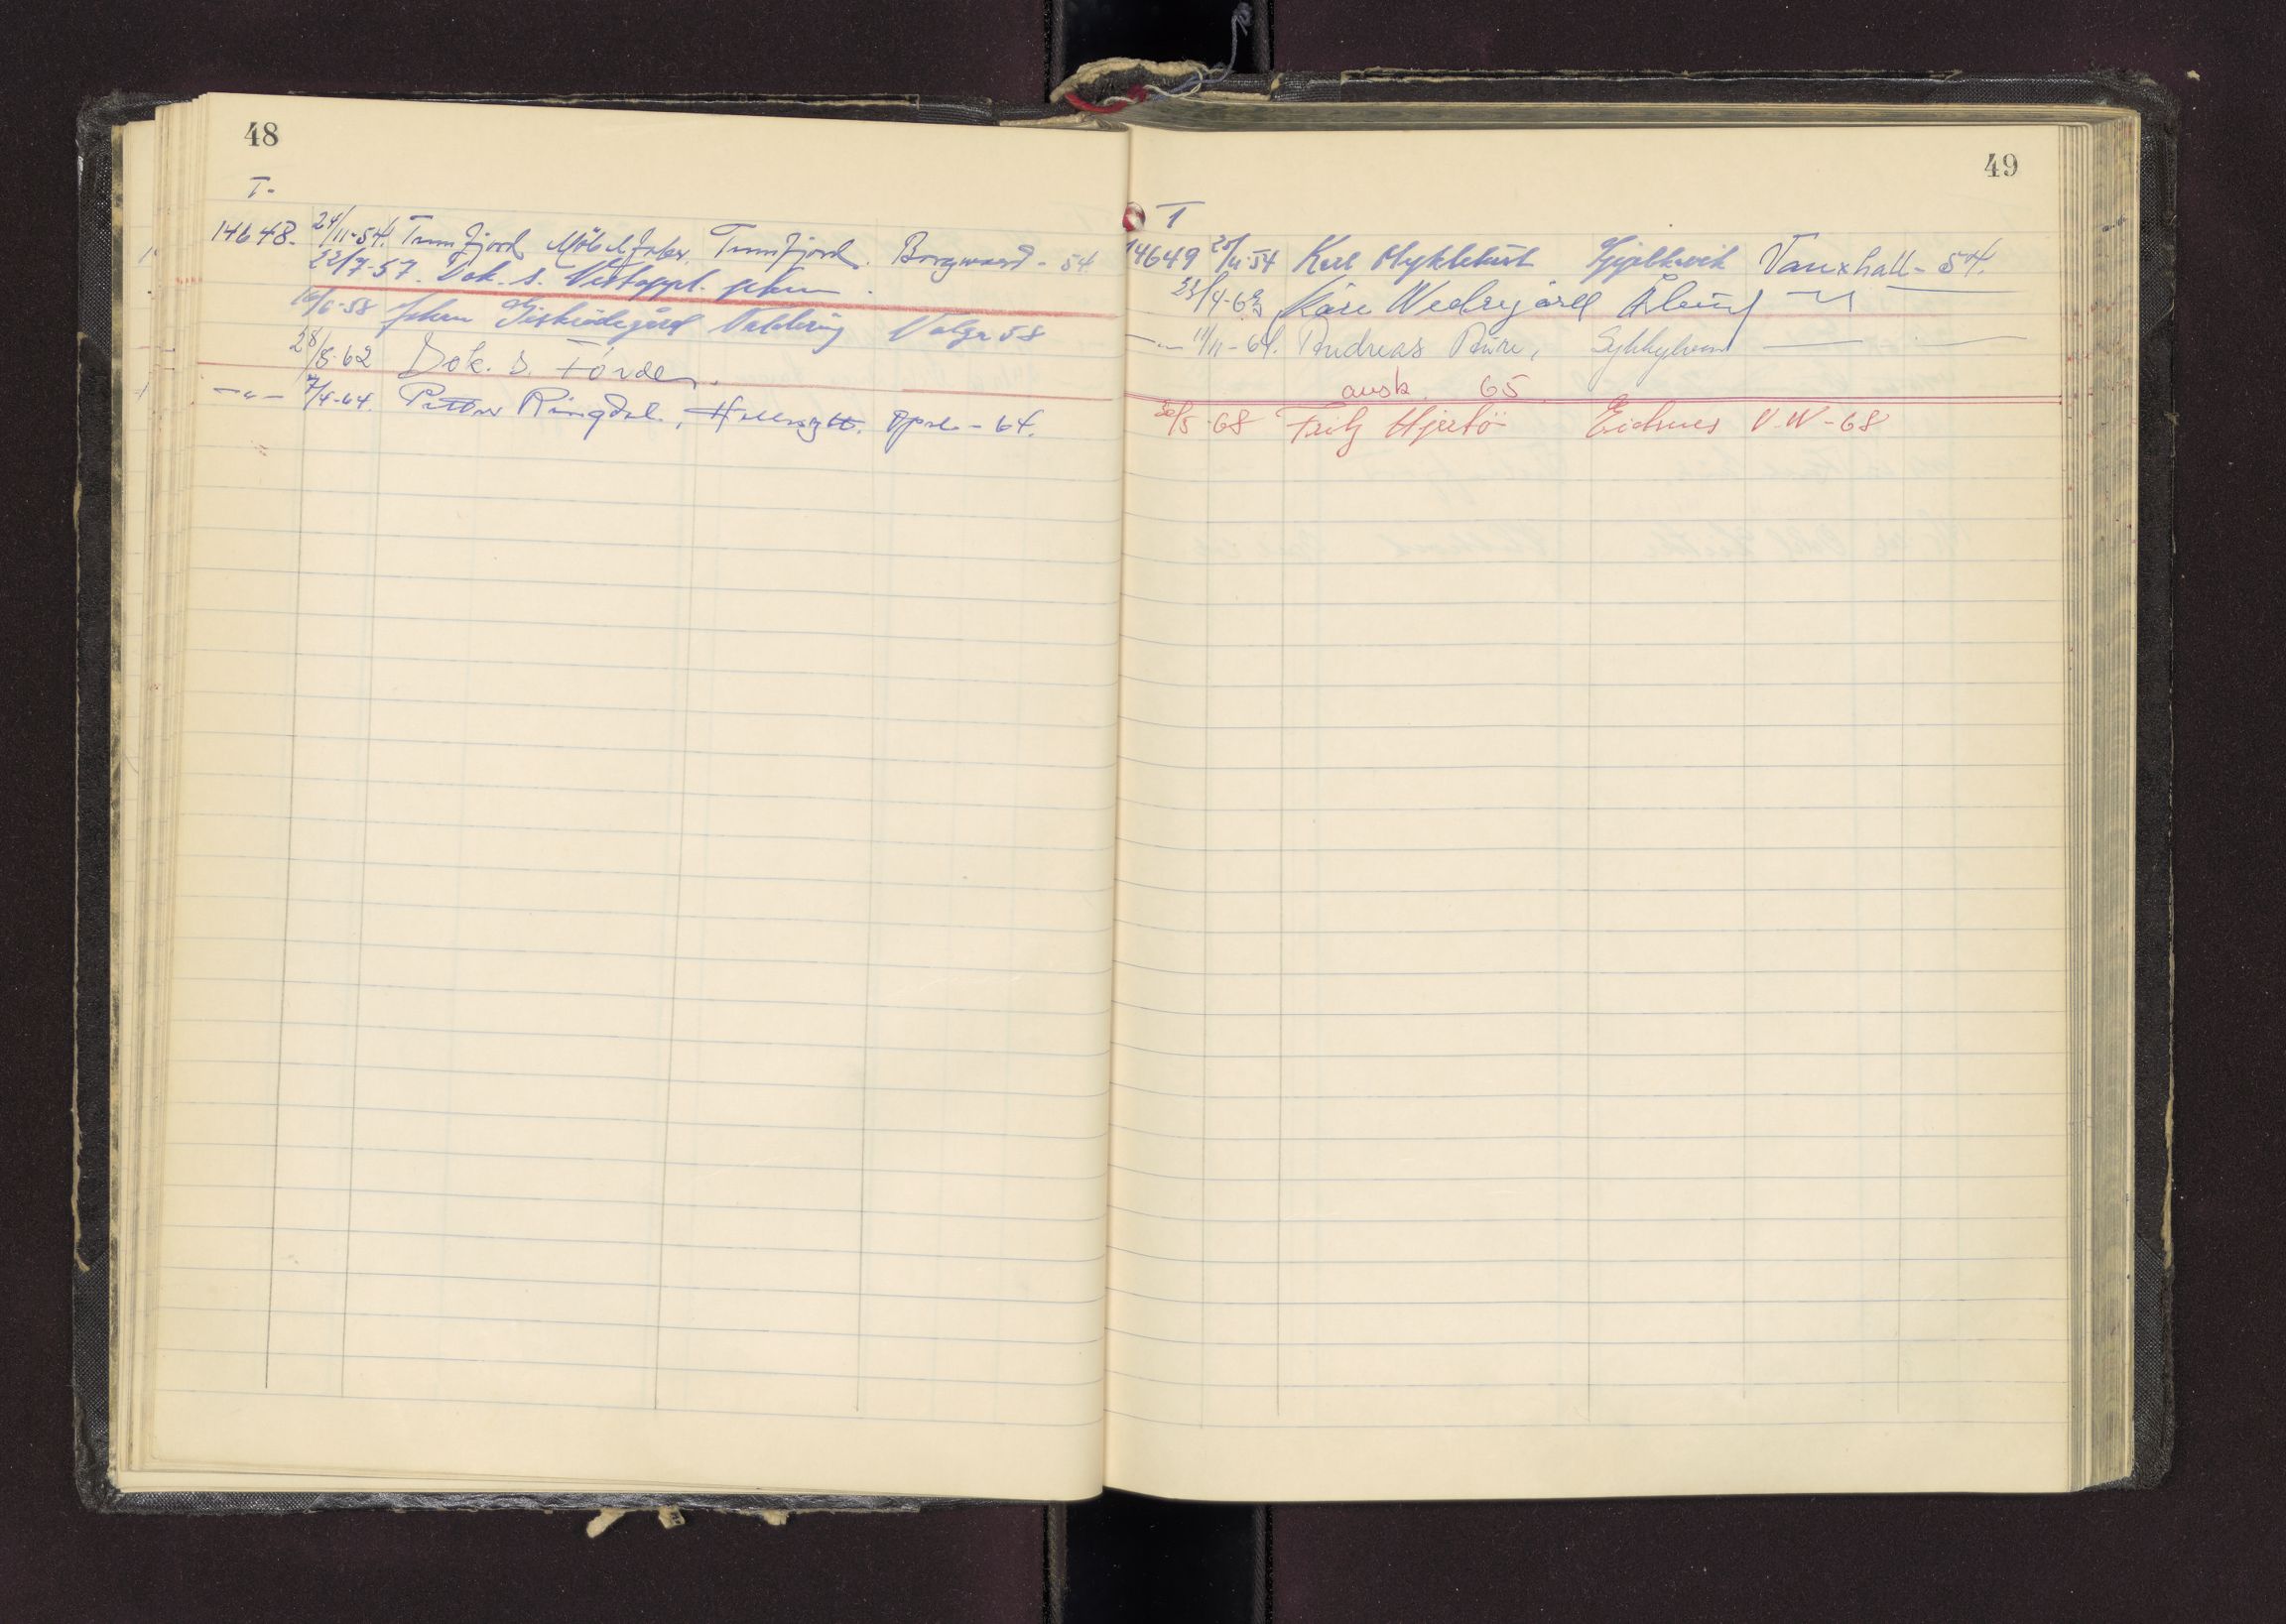 48
T-
14648. 24/11-54. Tennfjord Möbelfabr. Tennfjord. Borgward - 54
22/7-57. Dok. s. Vestoppl. politim.
10/6-58 Johan Giskeødegård Valderøy Volga 58
28/8-62 Dok. s. Förde.
-"- 7/4-64. Petter Ringdal, Hellesylt. Opel - 64.
49
T
14649 25/11-54 Karl Myklebust Vauxhall - 54.
23/4-63 Kåre Wedregård Ålesund -"-
-"- 11/11-64. Andreas Aure, Sykkylven
avsk. 65
30/5-68 Fritz Hjertö Eidsnes V-W-68